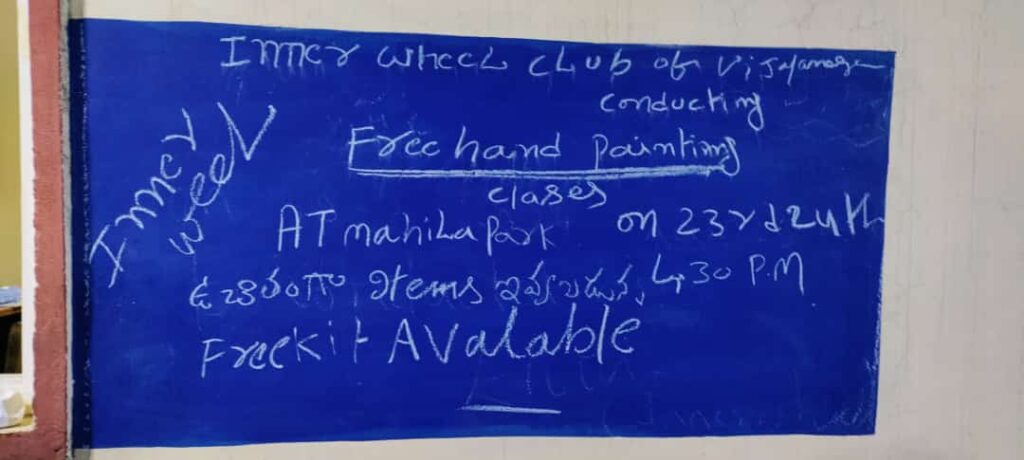 Inner wheel club of Vijayanagar
conducting
Free hand painting
clases
Inner
weel
AT mahila park on 23rd 24th
ఉచితంగా items ఇవ్వబడును 4.30 P.M
Free kit AValable